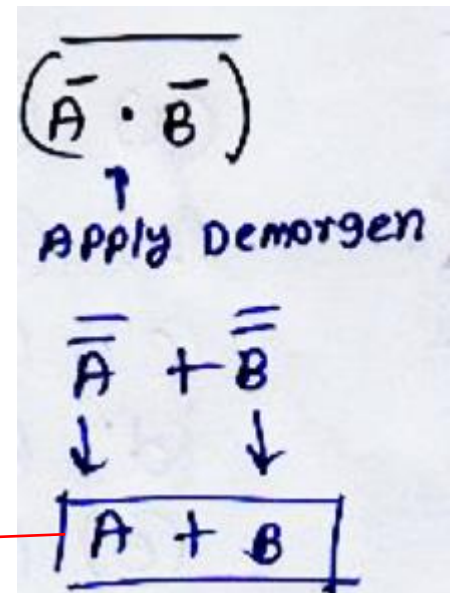 (A̅ · B̅)̅
↑
Apply Demorgen
A̿ + B̿
↓ ↓
A + B